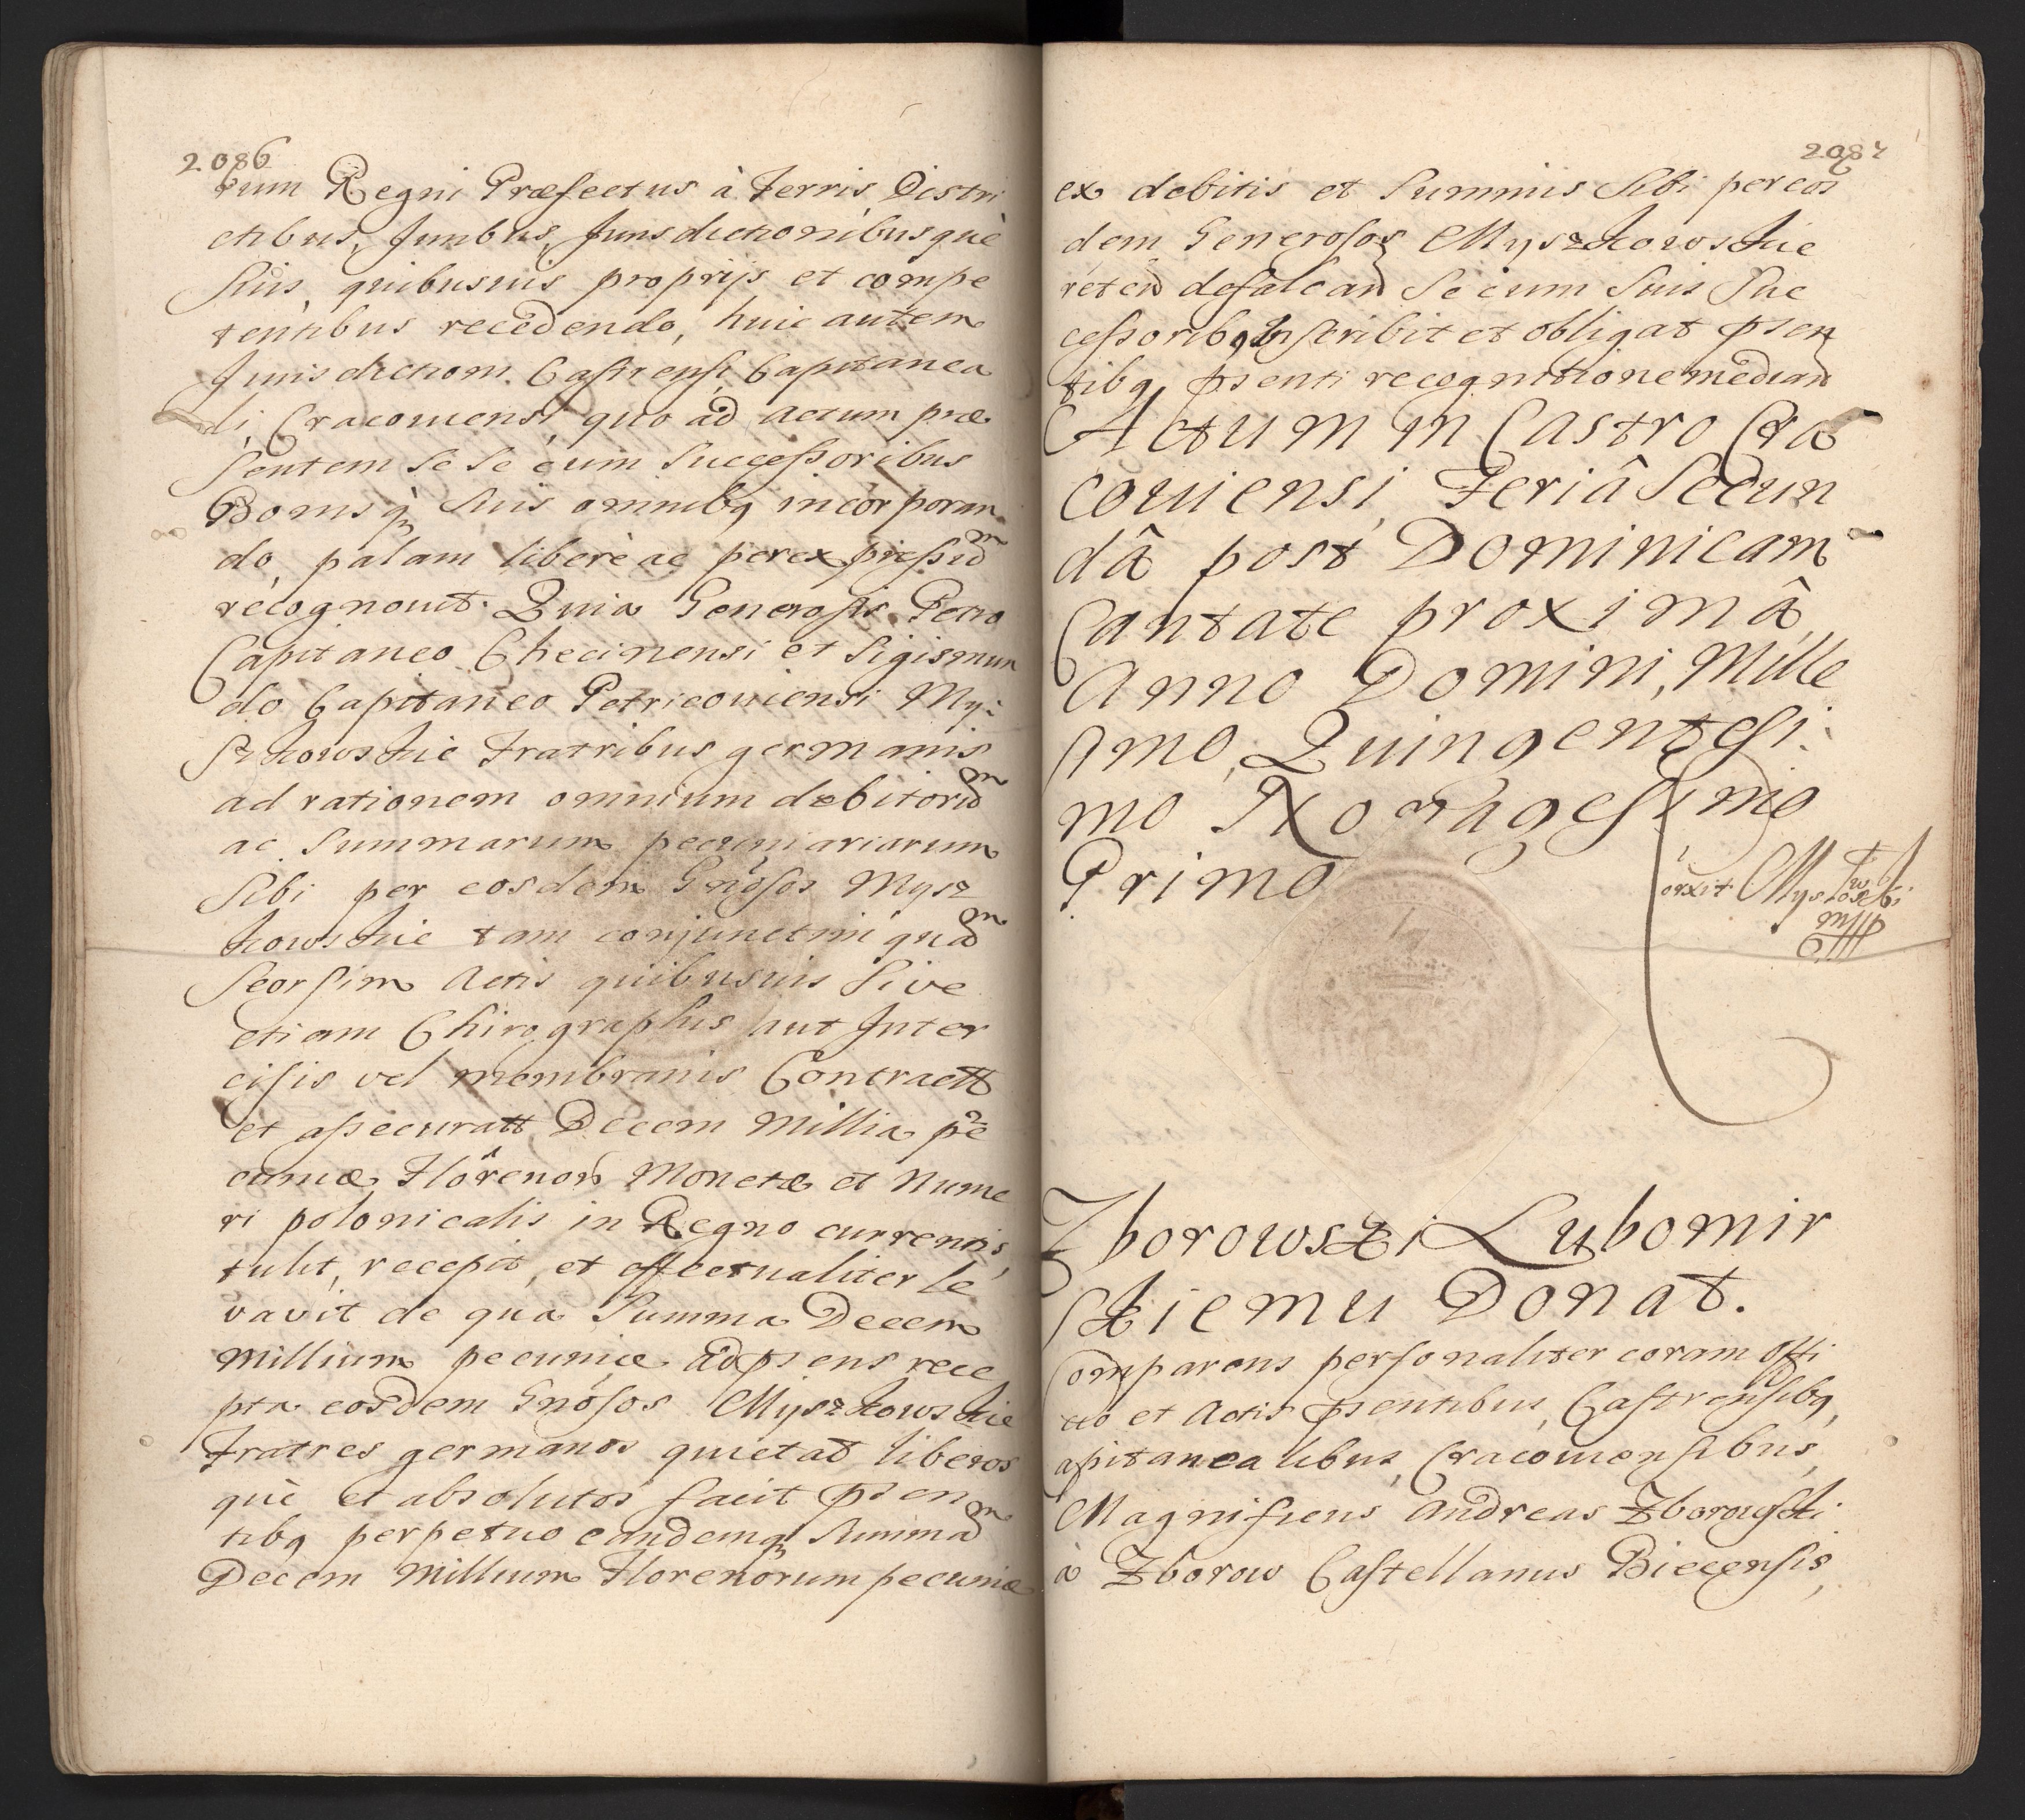 2086
rum Regni Præfectus à Terris Distri
ctibus, Juribus, Jurisdictionibusquè
Suis, quibusuis proprijs et compe
tentibus recedendo, huic autem
Jurisdictioni Castrensi Capitanea
li, Cracouiensi, quo ad actum præ
sentem Se Se cum Successoribus
Bonisq; Suis omnibq incorporan
do, palam liberè ac per expressũ
recognouit. Quia Generosis Petro
Capitaneo Checinensi et Sigismun
do Capitaneo Petricouiensi My:
szkowskie Fratribus germanis
ad rationem omnium debitorũ
ac Summarum pecuniariarum
Sibi per eosdem Gnősos Mysz
kowskie tam conjunctim quã
Seorsim Actis quibusuis Sive
etiam Chirographis aut Inter
cisis vel membranis Contractt
et assecuratt Decem Millia pe
cuniæ Florenor̃ Monetæ et Nume
ri polonicalis in Regno currentis,
tulit, recepit, et effectualiter le
vavit de qua Summa Decem
Millium pecuniæ ad psens rece
pta eosdem Gnősos Myszkowskie
Fratres germanos quietat liberos
què et absolutos facit psen
tibq perpetuo eandemq; Summã
Decem Millium Florenorum pecuniæ
2087
ex debitis et Summis Sibi per eos
dem Generosos Myszkowskie
reten̄ defalcan̄ Se cum Suis Suc
cessoribq Inscribit et obligat psen
tibq, psenti recognitione median̄
Actum in Castro Cra
couiensi, Feriâ Secun
dâ post Dominicam
Cantate proximâ
Anno Domini, Mille
simo, Quingentesi:
mo Nonagesimo
Primo
Zborowski Lubomir
skiemu Donat.
Comparens personaliter coram offi
cio et Actis psentibus, Castrensibq,
apitanealibus, Cracouiensibus,
Magnificus Andreas Zborowski
à Zborow Castellanus Biecensis,